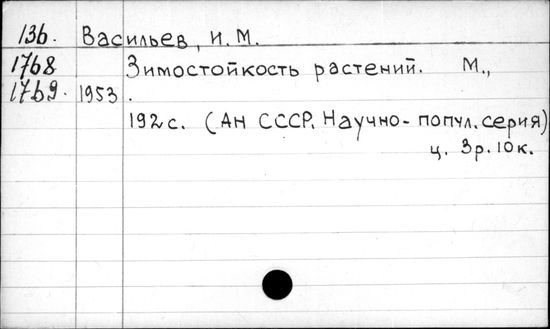 136. Васильев, И.М.
1768 Зимостойкость растений. М.,
1769. 1953.
192 с. (АН СССР. Научно-попул. серия)
ц. 3р. 10к.